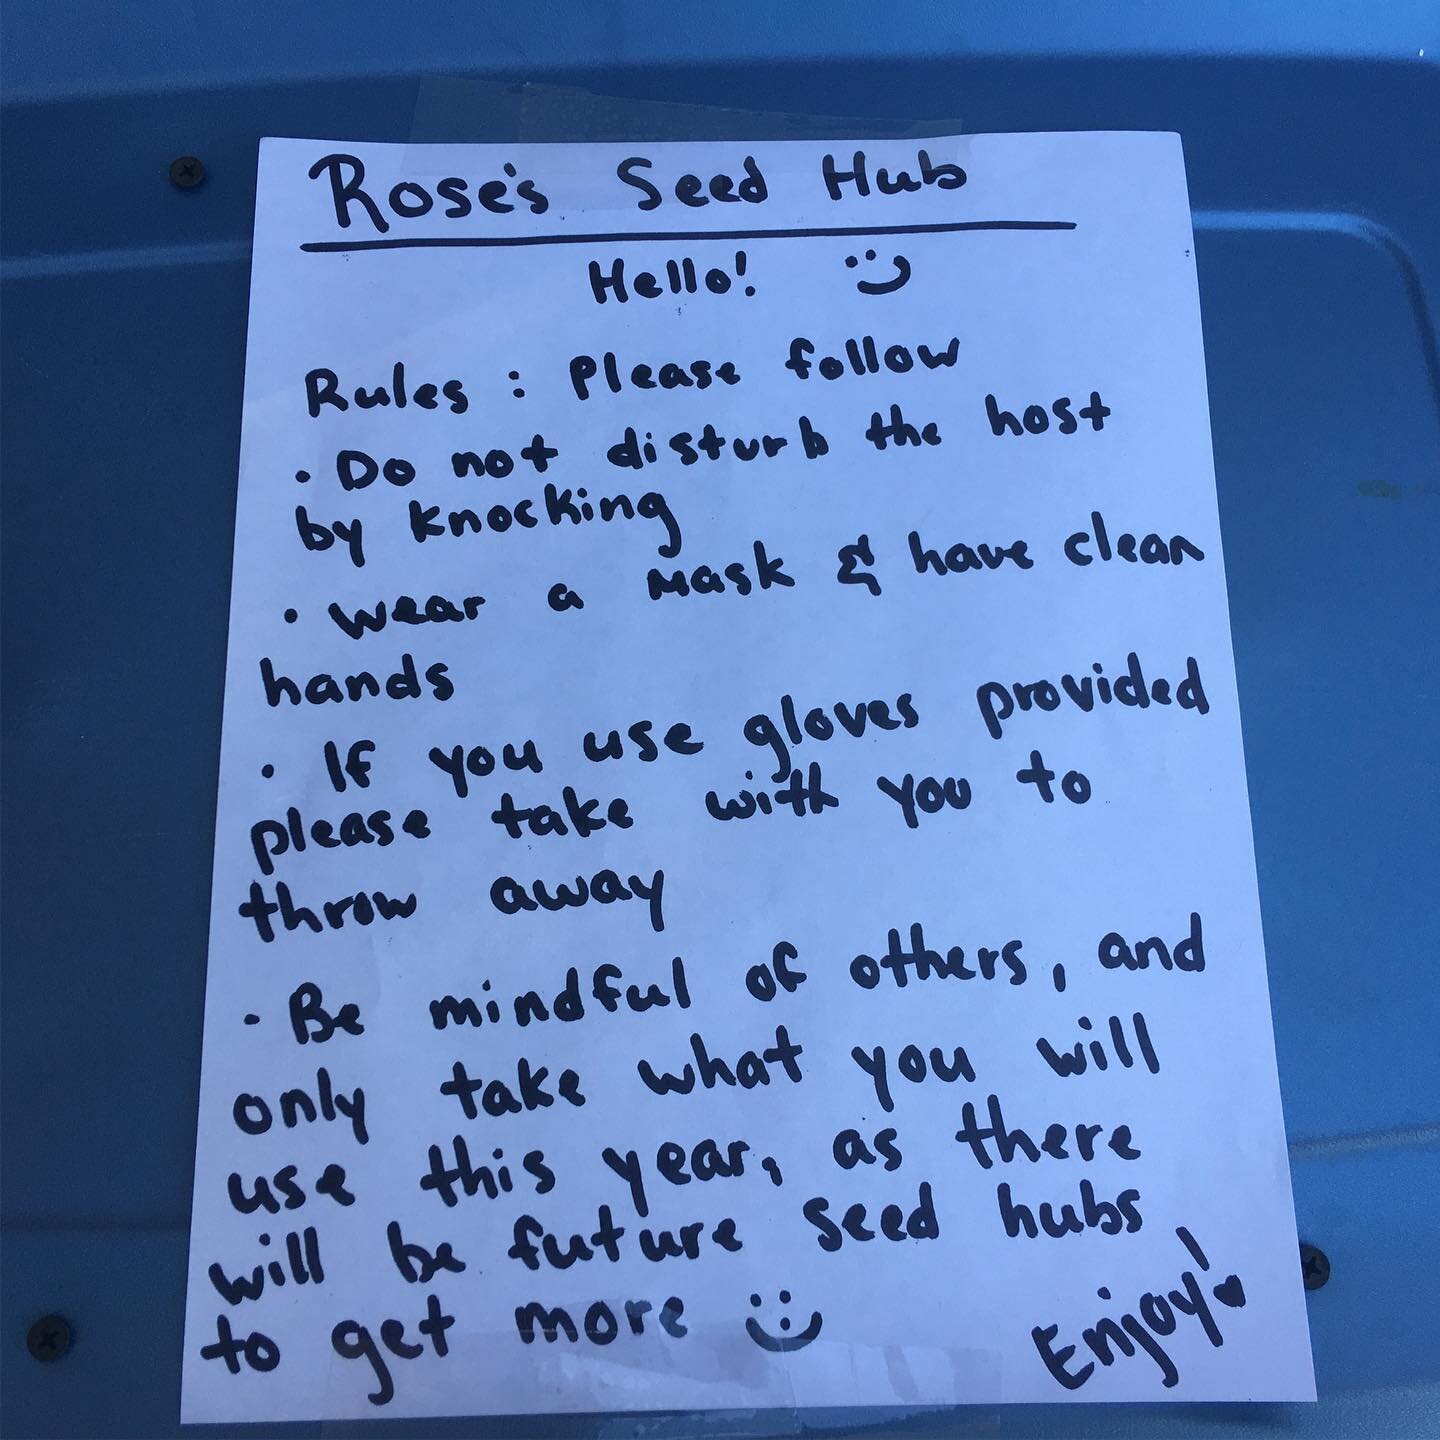 Rose's Seed Hub
Hello! :)
Rules : Please follow
· Do not disturb the host
by knocking
· Wear a mask & have clean
hands
· If you use gloves provided
please take with you to
throw away
· Be mindful of others, and
only take what you will
use this year, as there
will be future seed hubs
to get more :)
Enjoy!